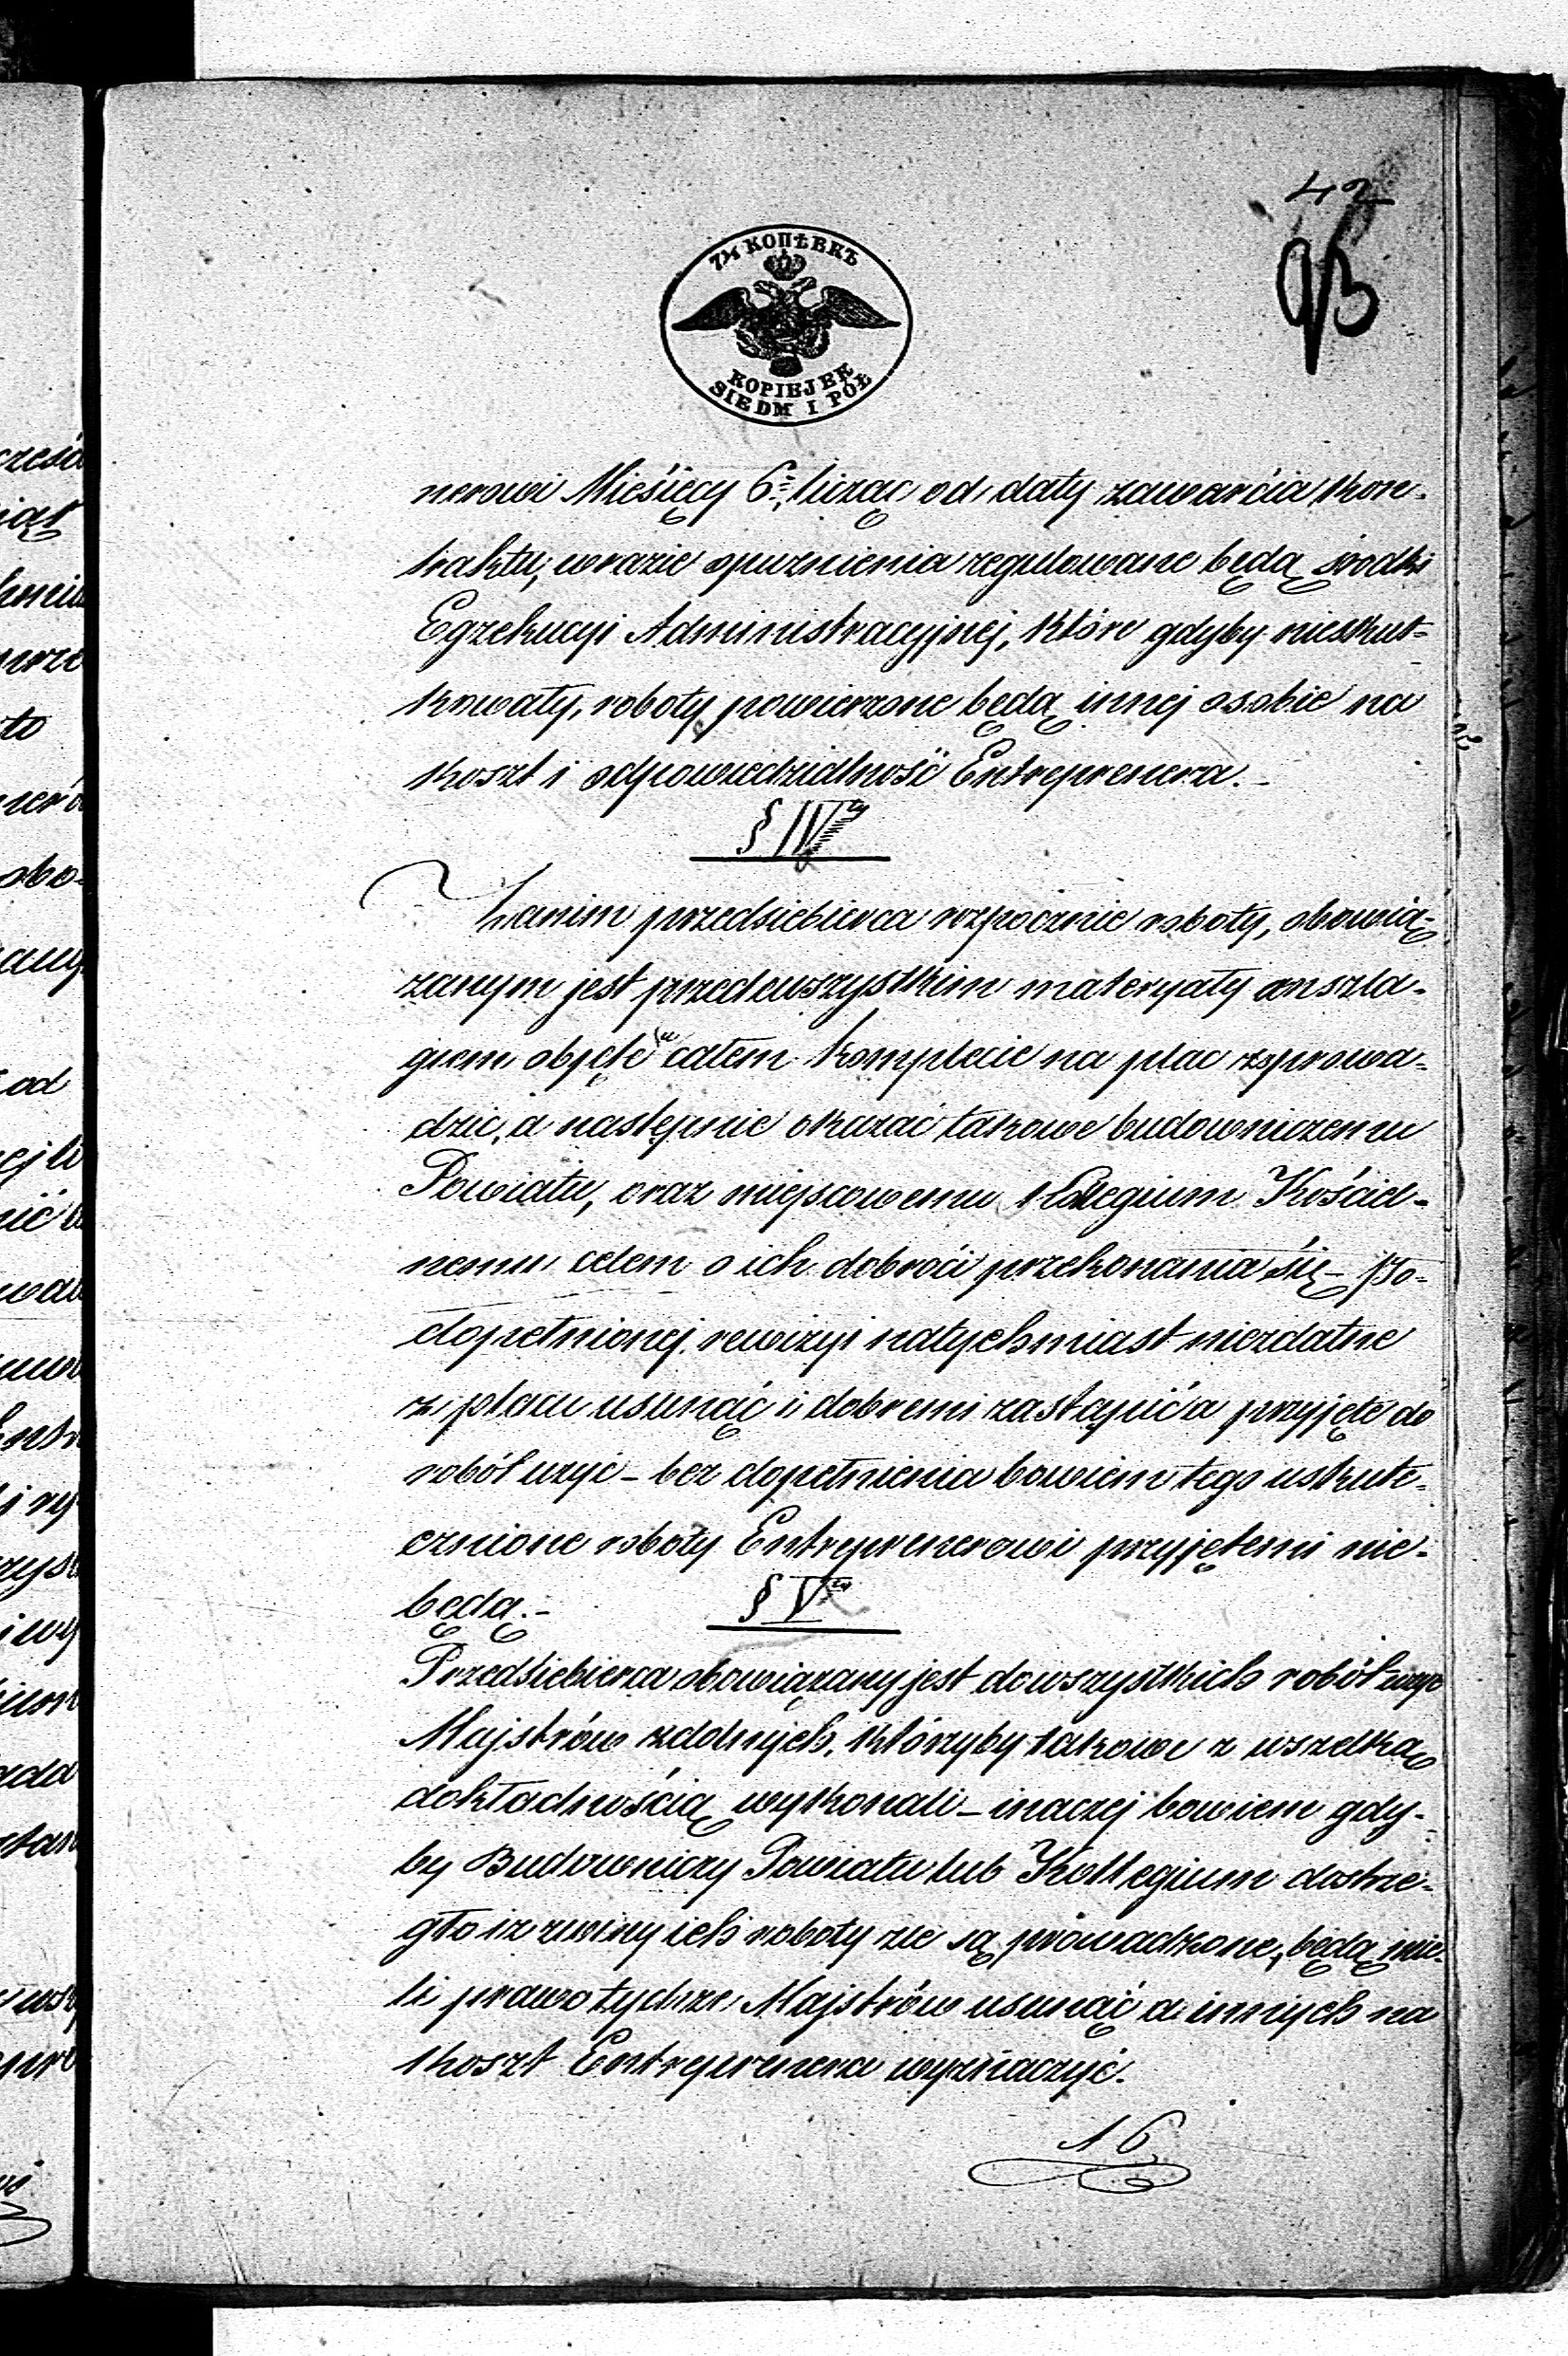 42
93
7½ КОПѢЕКЪ
KOPIEJEK
SIEDM I PÓŁ
nerowi Mieśięcy 6, licząc od daty zawarćia kon-
traktu, w razie opuznienia regulowane będą środki
Egzekucyi Administracyjnej, które gdyby nieskut-
kowały, roboty powierzone będą innej osobie na
koszt i odpowiedzialność Entreprenera.-
§ IV ty
Zanim przedsiebierca rozpocznie roboty, obowią-
zanym jest przedewszystkim materyały anszla-
giem objęte w całem komplecie na plac sprowa-
dzić, a następnie okazać takowe budowniczemu
Powiatu, oraz miejscowemu Kolegium Kościel-
nemu celem o ich dobroći przekonania śię - po-
dopełnionej rewizyi natychmiast niezdatne
z placu usunąć i dobremi zastąpić a przyjęte do
robót użyć - bez dopełnienia bowiem tego uskute-
cznione roboty Entreprenerowi przyjętemi nie-
będą.-
§ V ty
Przedsiebierca obowiązany jest do wszystkich robót użyć
Majstrów zdolnych, którzyby takowe z wszelką
dokładnością wykonali - inaczej bowiem gdy-
by Budowniczy Powiatu lub Kollegium dostrze-
gło iż z winy ich roboty źle są prowadzone, będą mie-
li prawo tychże Majstrów usunąć a innych na
koszt Entreprenera wyznaczyć.
16